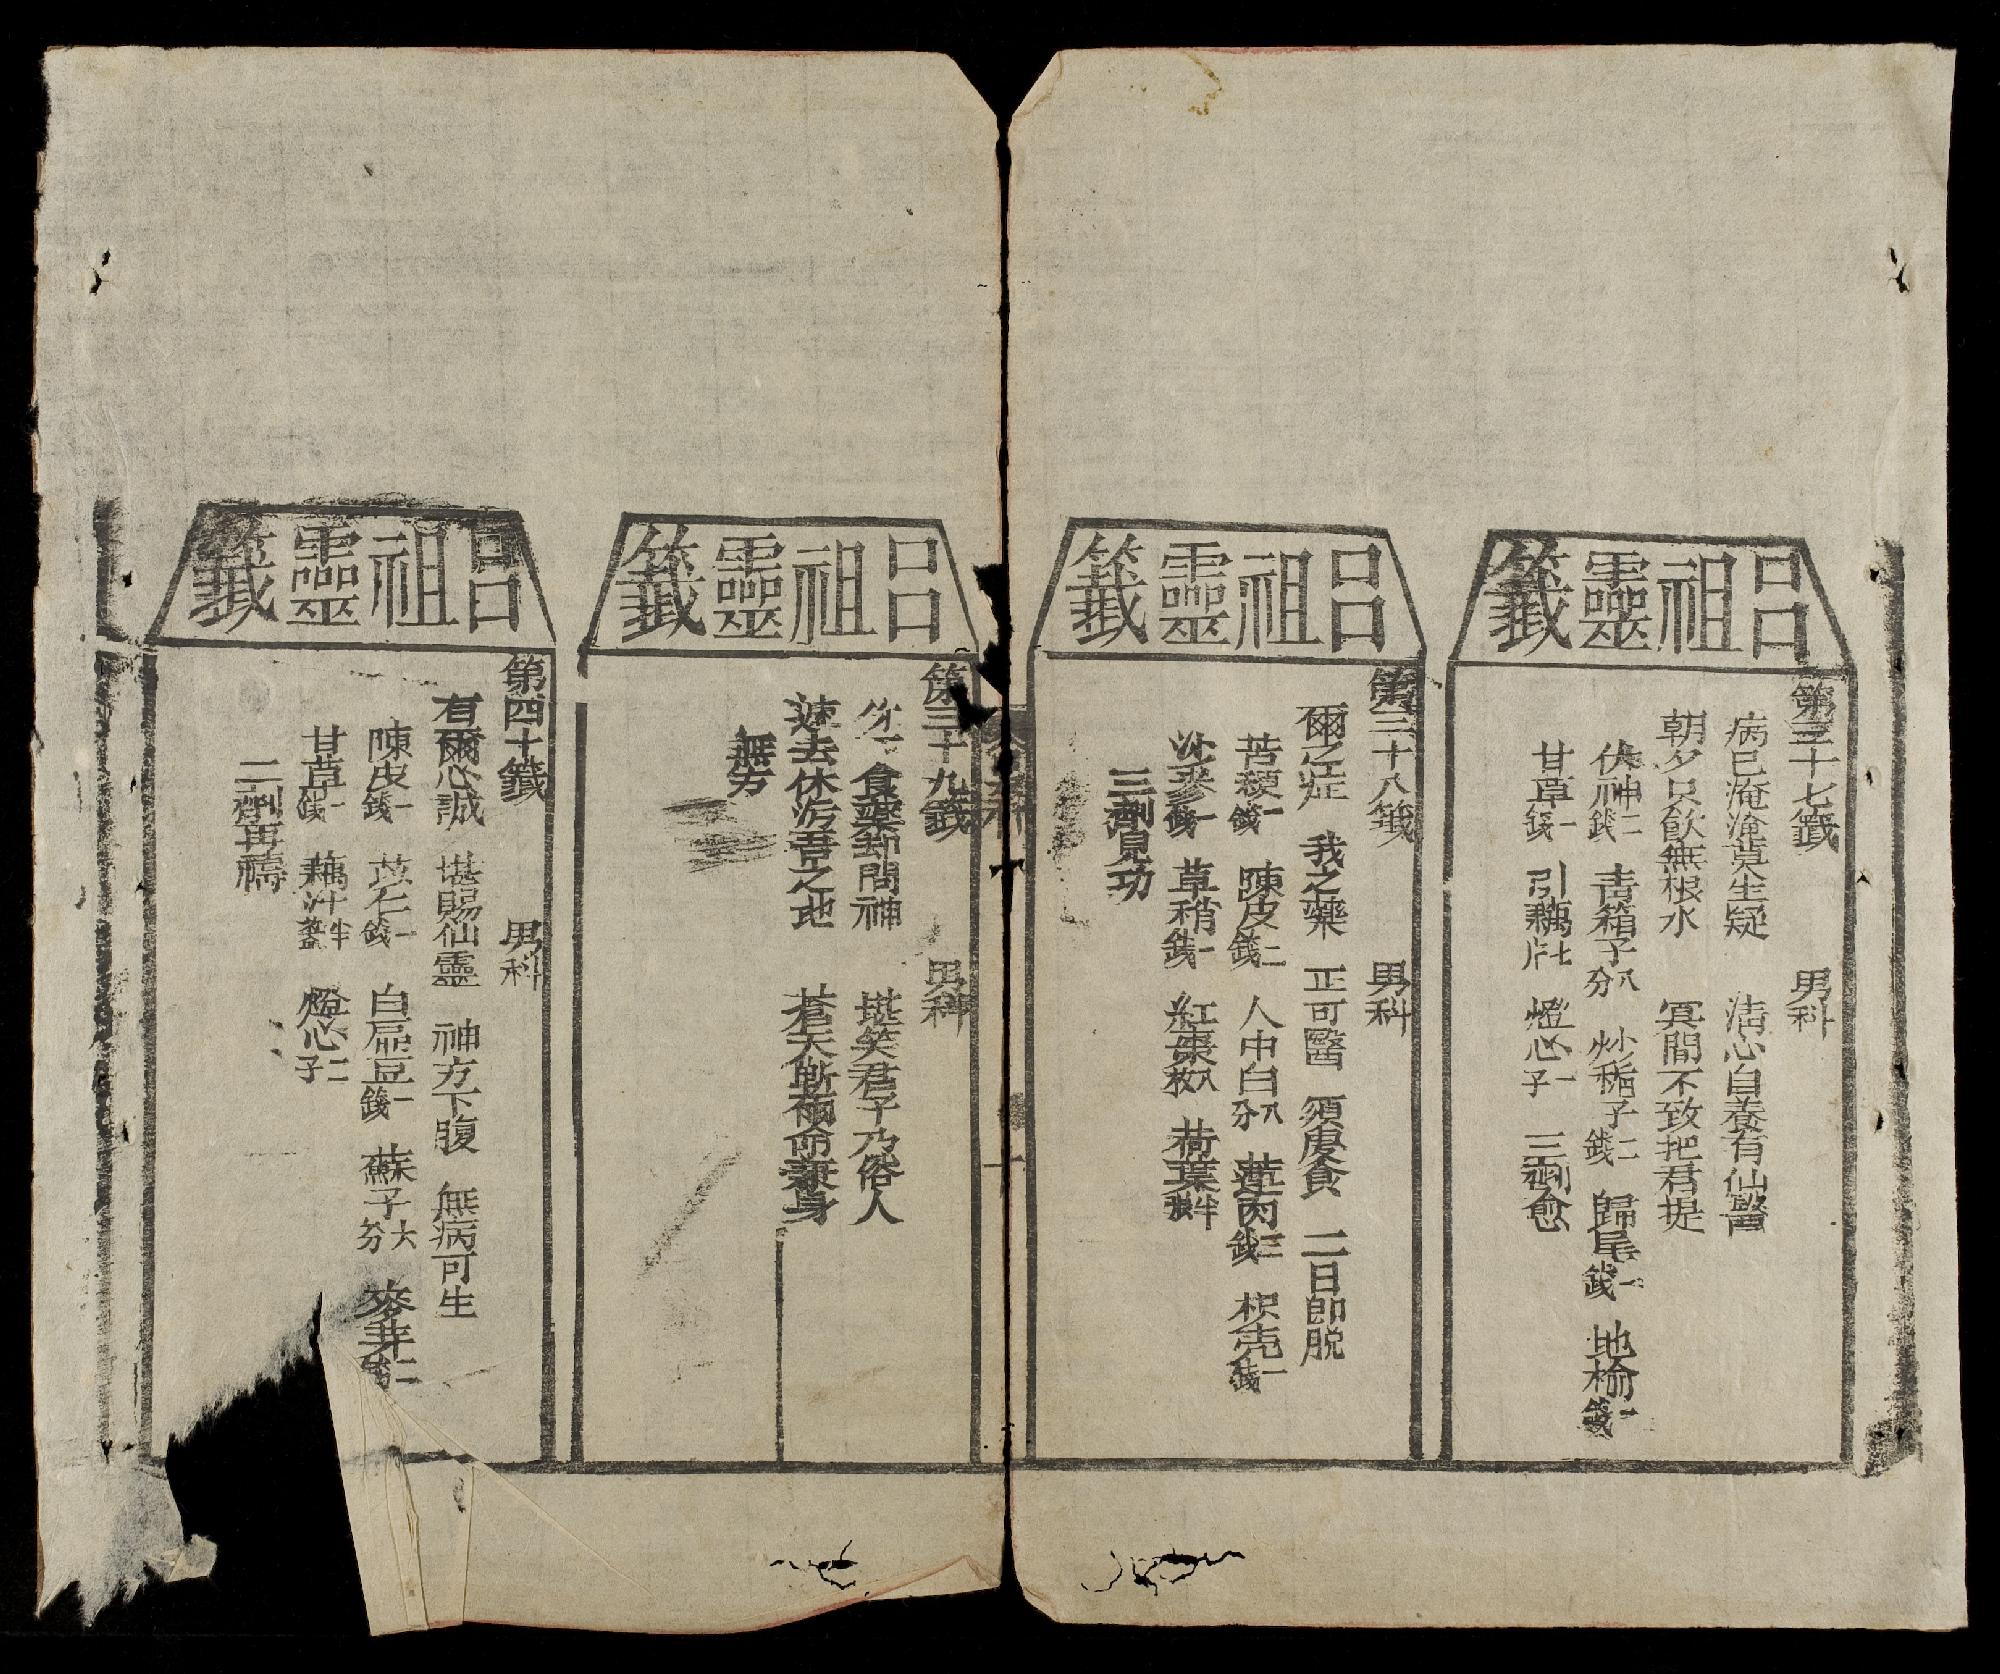 呂祖靈籤
第三十七籤 男科
病已淹淹莫生疑 清心自養有仙醫
朝夕只飲無根水 冥間不致把君提
伏神二錢 青箱子八分 炒梔子二錢 歸尾一錢 地榆一錢
甘草一錢 引藕七片 燈心一子 三劑愈
呂祖靈籤
第三十八籤 男科
爾之症 我之藥 正可醫 須虔食 二日卽脱
苦梗一錢 陳皮二錢 人中白八分 蓮肉三錢 枳壳一錢
沙參一錢 草稍一錢 紅棗八枚 荷葉半張
三劑見功
呂祖靈籤
第三十九籤 男科
食藥却問神 堪笑君子乃俗人
速去休污吾之地 蒼天斬爾命兼身
無方
呂祖靈籤
第四十籤 男科
有爾心誠 堪賜仙靈 神方下腹 無病可生
陳皮一錢 苡仁一錢 白扁豆一錢 蘇子六分 麥芽二錢
甘草一錢 藕汁半盞 燈心二子
二劑再禱